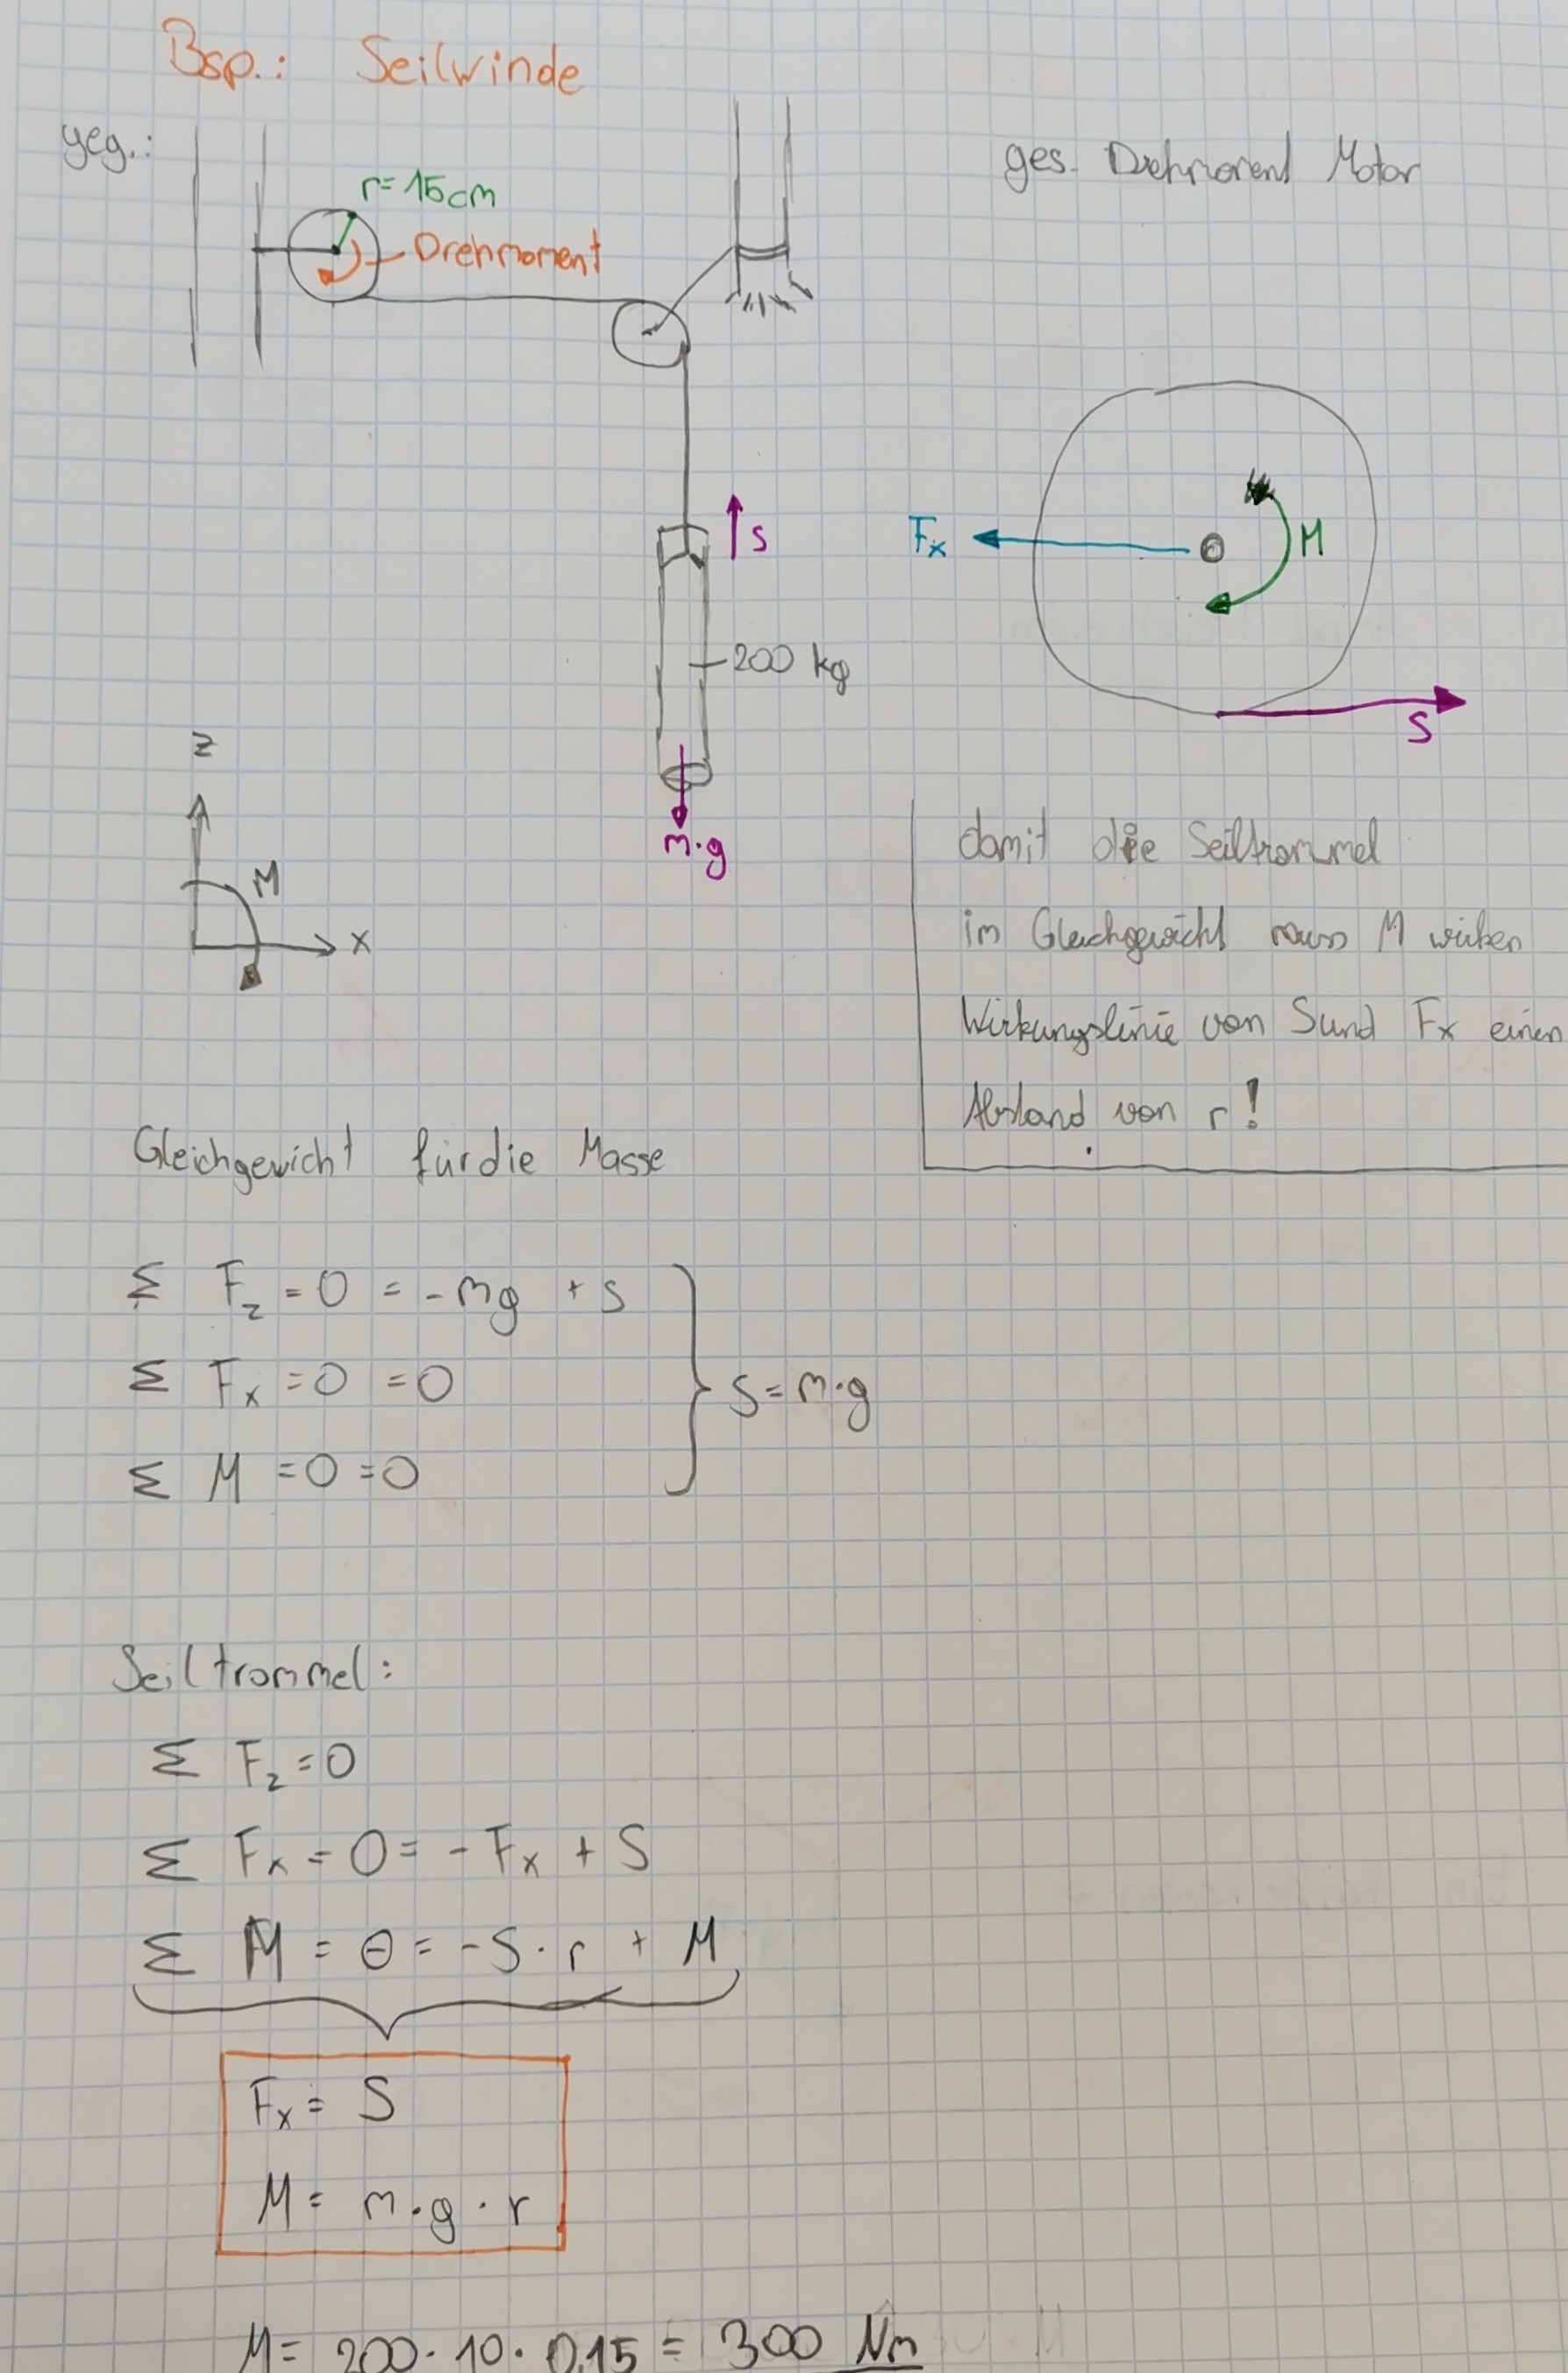 Bsp.: Seilwinde
geg.:
ges. Drehmoment Motor
r=15cm
Drehmoment
S
200 kg
m·g
z
M
x
Fx
M
S
damit die Seiltrommel
im Gleichgewicht muss M wirken
Wirkungslinie von S und Fx einen
Abstand von r!
Gleichgewicht für die Masse
Σ Fz = 0 = -mg + S
Σ Fx = 0 = 0
Σ M = 0 = 0
S = m·g
Seiltrommel:
Σ Fz = 0
Σ Fx = 0 = - Fx + S
Σ M = 0 = -S · r + M
Fx = S
M = m·g·r
M = 200 · 10 · 0,15 = 300 Nm